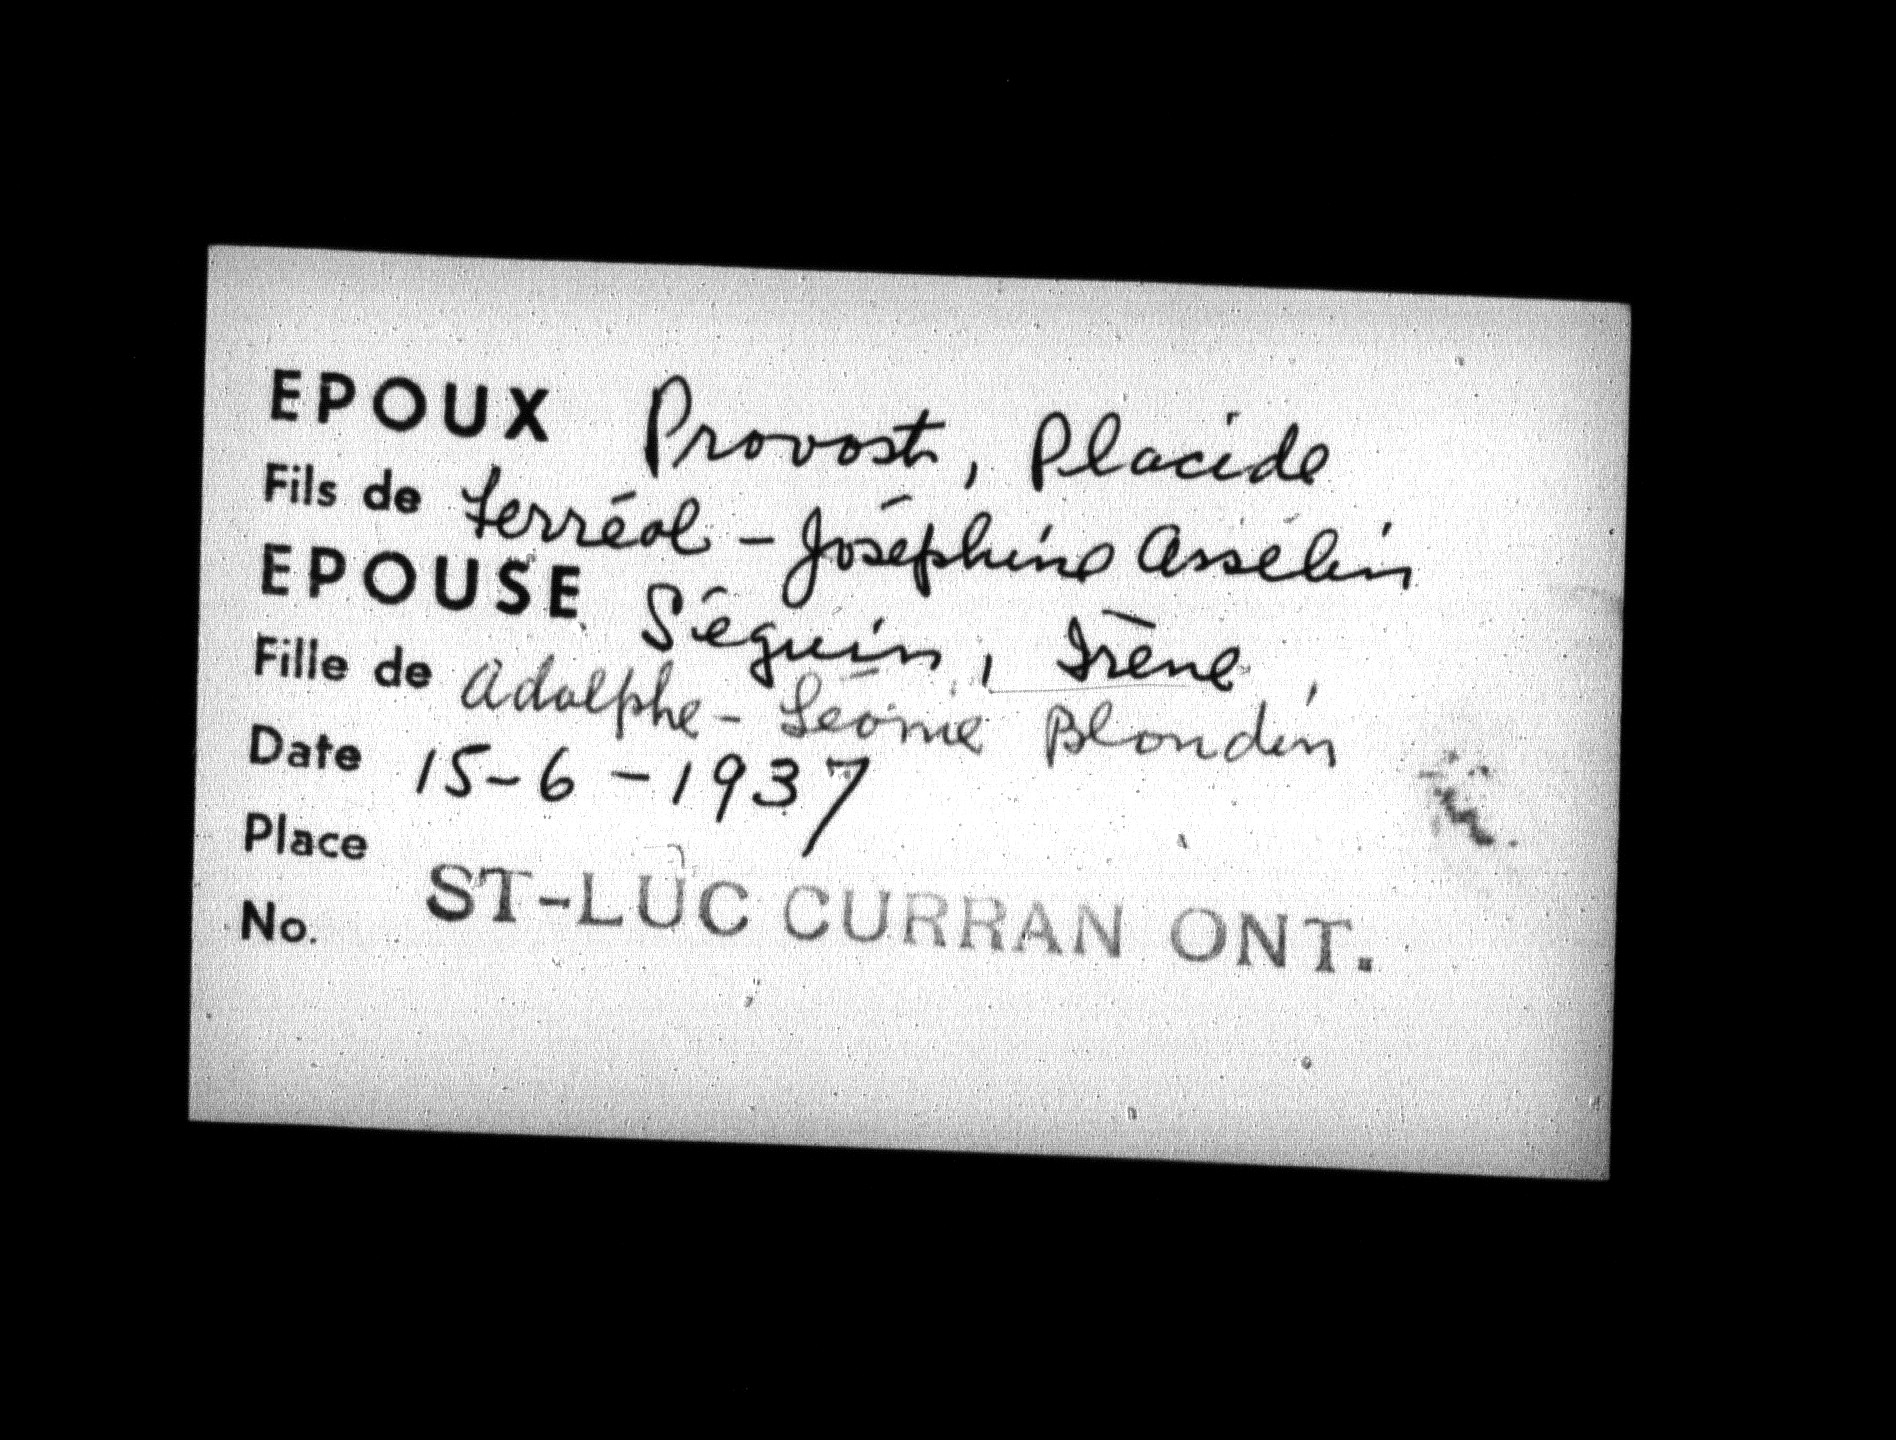 EPOUX Provost, Placide
Fils de Ferréol - Joséphine Asselin
EPOUSE Séguin, Irène
Fille de Adolphe - Léonie Blondin
Date 15-6-1937
Place ST-LUC CURRAN ONT.
No.